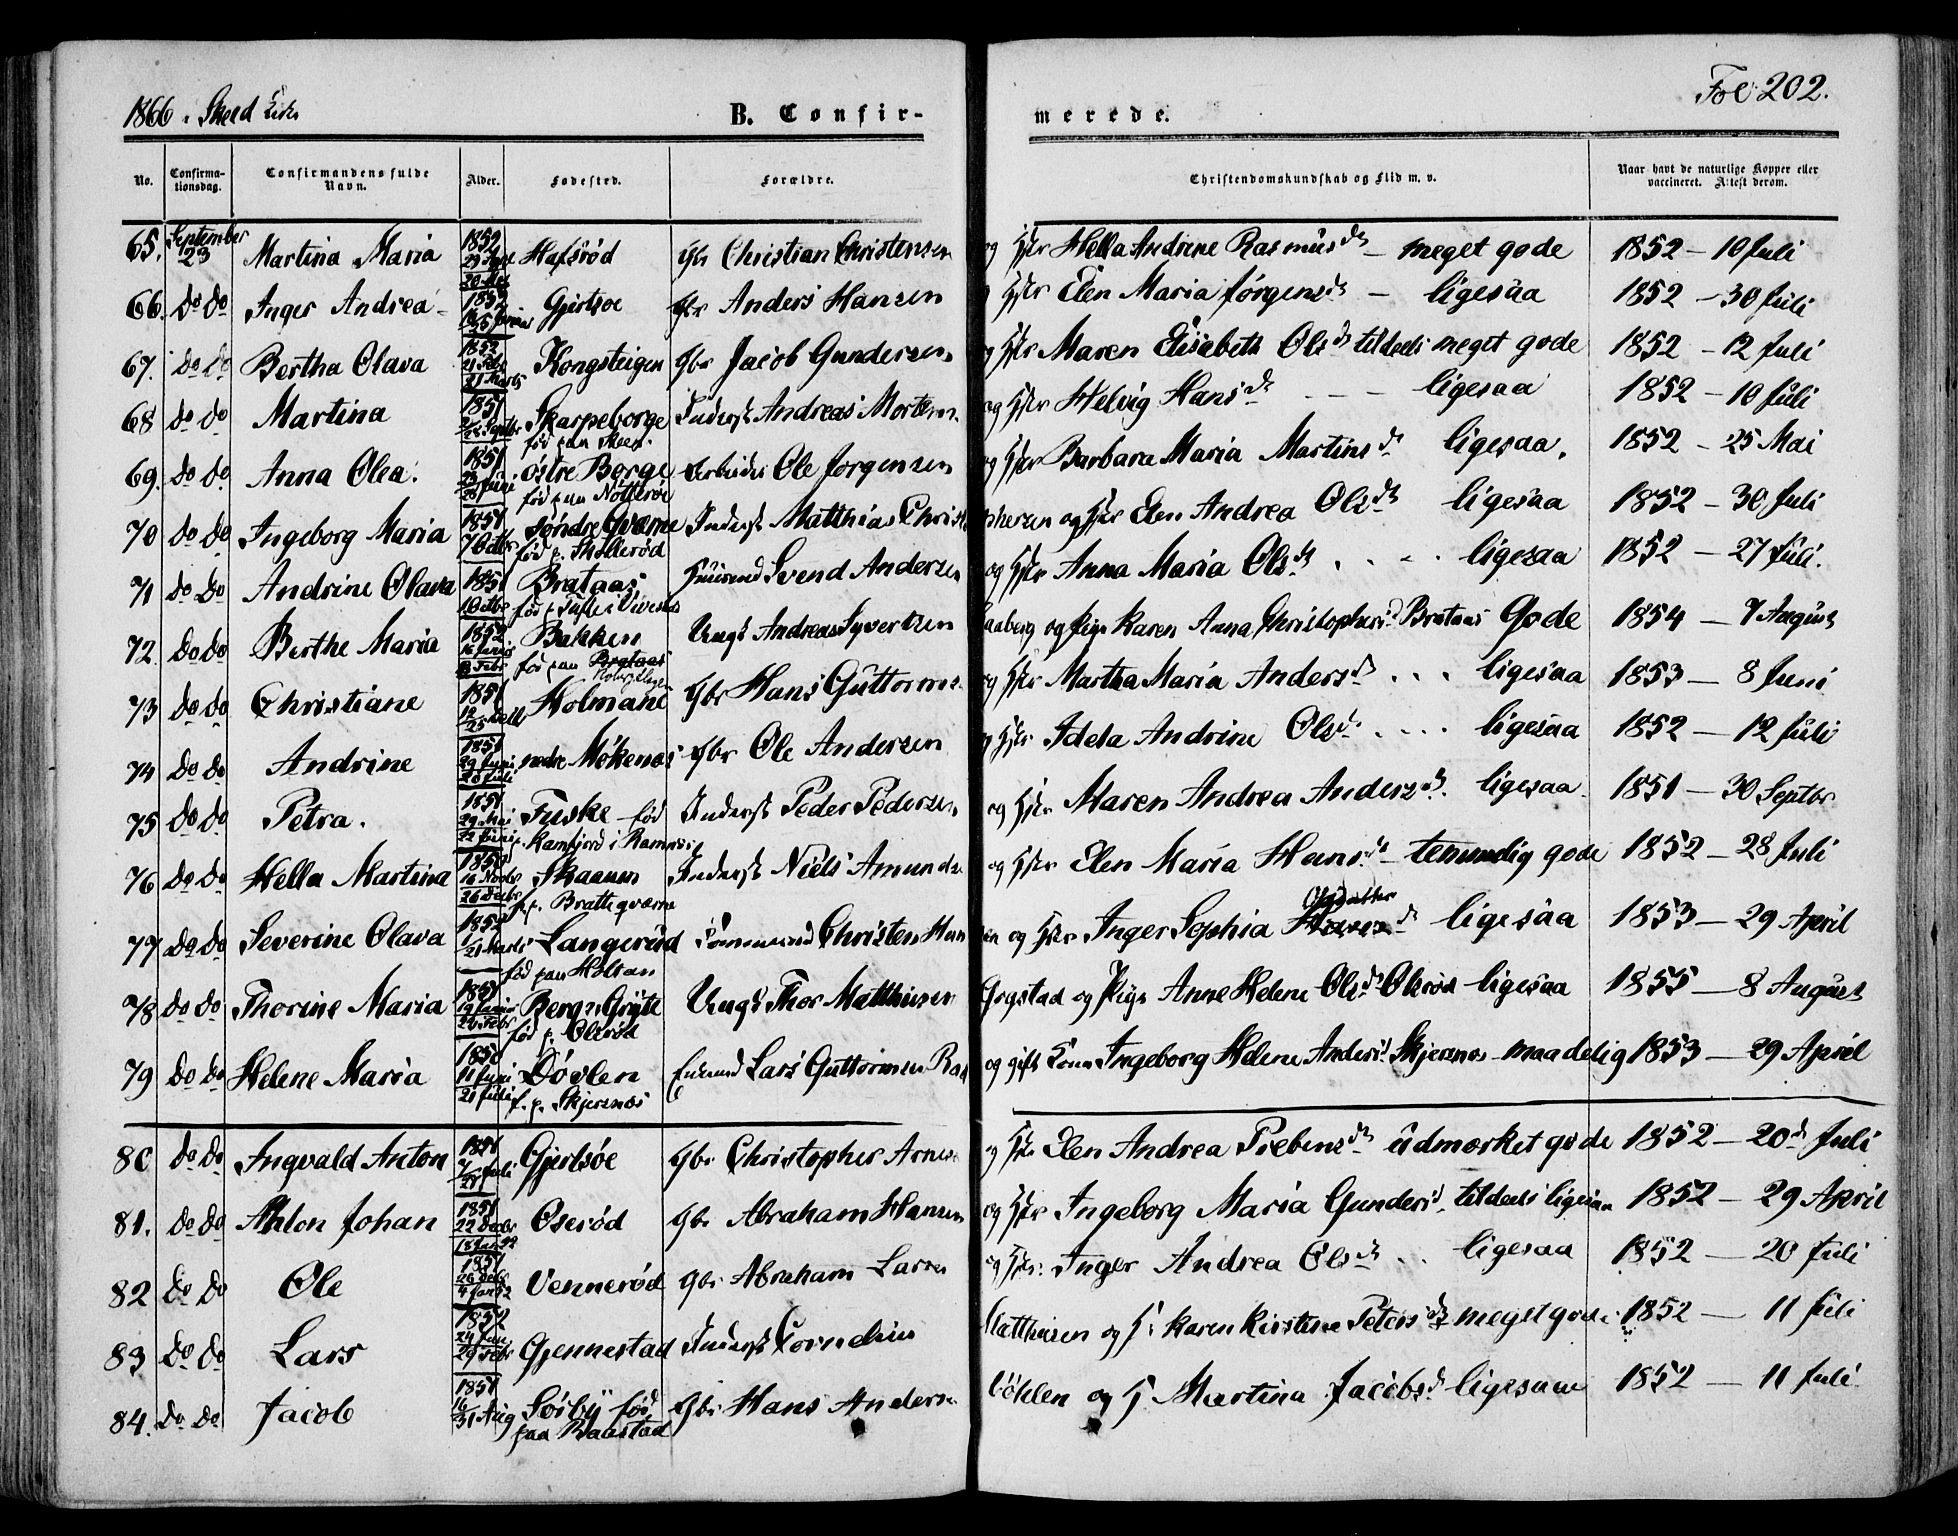 1866 . Skeed Kirke
B. Confir-
merede.
Fol: 202.
No.
Confirma-tionsdag.
Confirmandens fulde Navn.
Alder.
Fødested.
Forældre.
Christendomskundskab og Flid m. v.
Naar havt de naturlige Kopper eller vaccineret. Attest derom.
65. September 23 Martina Maria 1852 Hafsrød Gbr Christian Christensen og Hstr Hella Andrine Rasmusd. – meget gode 1852 – 10 Juli
66. Do Do Inger Andrea 1852 Gjertsøe Gbr Anders Hansen Hstr Elen Maria Jørgensd. – ligesaa 1852 – 30 Juli
67. Do Do Bertha Olava 1852 21 Febr 21 Marts Kongsteigen Gbr Jacob Gundersen og Hstr Maren Elisebeth Olsd. tildeels meget gode 1852 – 12 Juli
68 Do Do Martina 1851 Septbr Skarpeborge født paa Skeen. Inderst Andreas Mortens. og Hstr Helvig Hansd. – – ligesaa 1852 – 10 Juli
69. Do Do Anna Olea. 1851 Juni østre Berge født paa Nøtterøe Arbeider Ole Jørgensen og Hstr Barbara Maria Martinsd. ligesaa. 1852 – 25 Mai
70 Do Do Ingeborg Maria 1851 7 Octbr søndre Qværne født p. Skollerød Inderst Matthias Christopherzen og Hstr Elen Andrea Olsd. ligesaa 1852 – 30 Juli
71 Do Do Andrine Olava 1851 Octbr Brataas Huusmd Svend Andersen og Hstr Anna Maria Olsd. . . . ligesaa 1852 – 27 Juli.
72. Do Do Berthe Maria 1852 Febr Bakken født paa Brataas Ungk Andreas Syvertzen aaberg og Pige Karen Anna Christophersd. Brataas Gode 1854 – 7 August
73 Do Do Christiane 1851 Holmane Gbr Hans Guttorms. og Hstr Martha Maria Andersd. . . . ligesaa 1853 – 8 Juni
74 Do Do Andrine 1851 29 Juni 28 Juli nedre Møkenæs Gbr Ole Andersen og Hstr Idela Andrine Olsd. . . . . ligesaa 1852 – 12 Juli
75 Do Do Petra. 1851 29 Mai 22 Juni Fuske – født p. Ramfjord i Ramnæs Inderst Peder Pedersen og Hstr Maren Andrea Andersd. ligesaa. 1851 – 30 Septbr
76 Do Do Hella Martina 16 Novbr 26 Decbr Skaanen f. p. Bratteqværne Inderst Niels Amunds. og Hstr Elen Maria Hansd. – temmelig gode 1852 – 28 Juli
77 Do Do Severine Olava 1852 Marts Langerød født paa Holtan Tømmermd Christen Hansen og Hstr Inger Sophia Olsdatter ligesaa 1853 – 29 April
78 Do Do Thorine Maria 1851 Berg i Gryte født p. Olerød Ungk Thor Matthisen Gogstad og Pige Anne Helene Olsd. Olerød ligesaa 1855 – 8 August
79 Do Do Helene Maria 1850 11 Juni 21 Juli Døvlen f. p. Skjersnæs Enkemd Lars Guttormsen og gift Kone Ingeborg Helene Andersd. Skjersnæs – maadelig 1853 – 29 April
80 Do Do Ingvald Anton 1851 Juli Gjertsøe Gbr Christopher Arnes. og Hstr Elen Andrea Prebensd. udmærket gode 1852 – 20d Juli
81. Do Do Anton Johan 1851 22 Decbr 18 Jan 52 Oserød Gbr Abraham Hansen og Hstr Ingeborg Maria Gundersd. tildeels ligesaa 1852 – 29 April
82 Do Do Ole 1851 26 Decbr 4 Jan 52 Vennerød Gbr Abraham Larsen og Hstr: Inger Andrea Olsd. . . ligesaa 1852 – 20 Juli
83 Do Do Lars 1852 24 Jan 29 Febr Gjennestad Inderst Cornelius Matthisen og H: Karen Kirstine Petersd. meget gode 1852 – 11 Juli
84. Do Do Jacob 1851 16 31 Aug Sørby født paa Raastad Gbr Hans Anders. og H Martina Jacobsd. ligesaa 1852 – 11 Juli